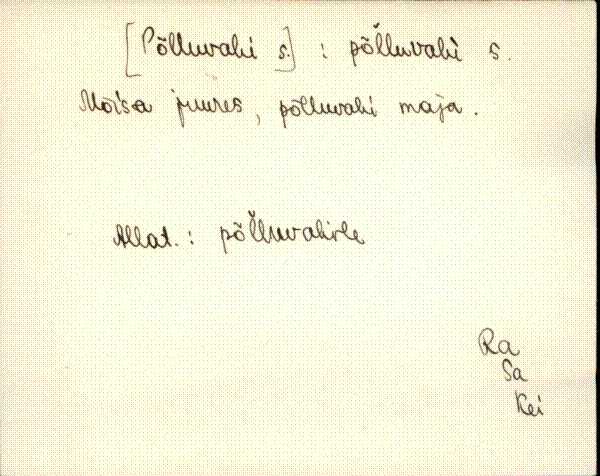 [Põlluvahi s.] : põl̆luvahì s.
Mõisa juures, põlluvahi maja.
Allat. : põl̆luvahile
Ra
Sa
Kei